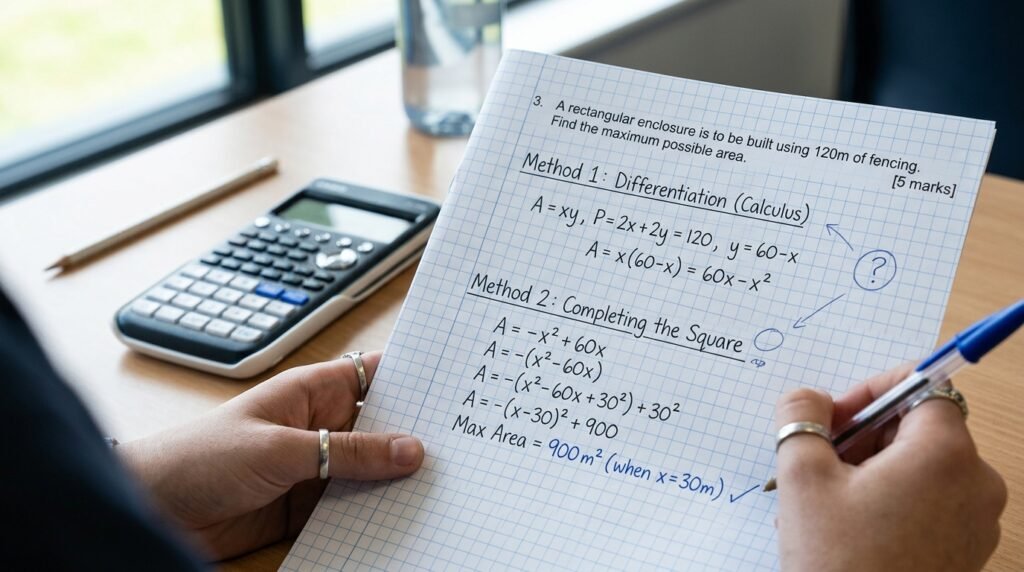 3. A rectangular enclosure is to be built using 120m of fencing.
Find the maximum possible area.
[5 marks]
Method 1: Differentiation (Calculus)
A = xy, P = 2x + 2y = 120, y = 60 - x
A = x(60-x) = 60x - x²
?
Method 2: Completing the Square
A = -x² + 60x
A = -(x² - 60x)
A = -(x² - 60x + 30²) + 30²
A = -(x - 30)² + 900
Max Area = 900 m² (when x = 30m) ✓